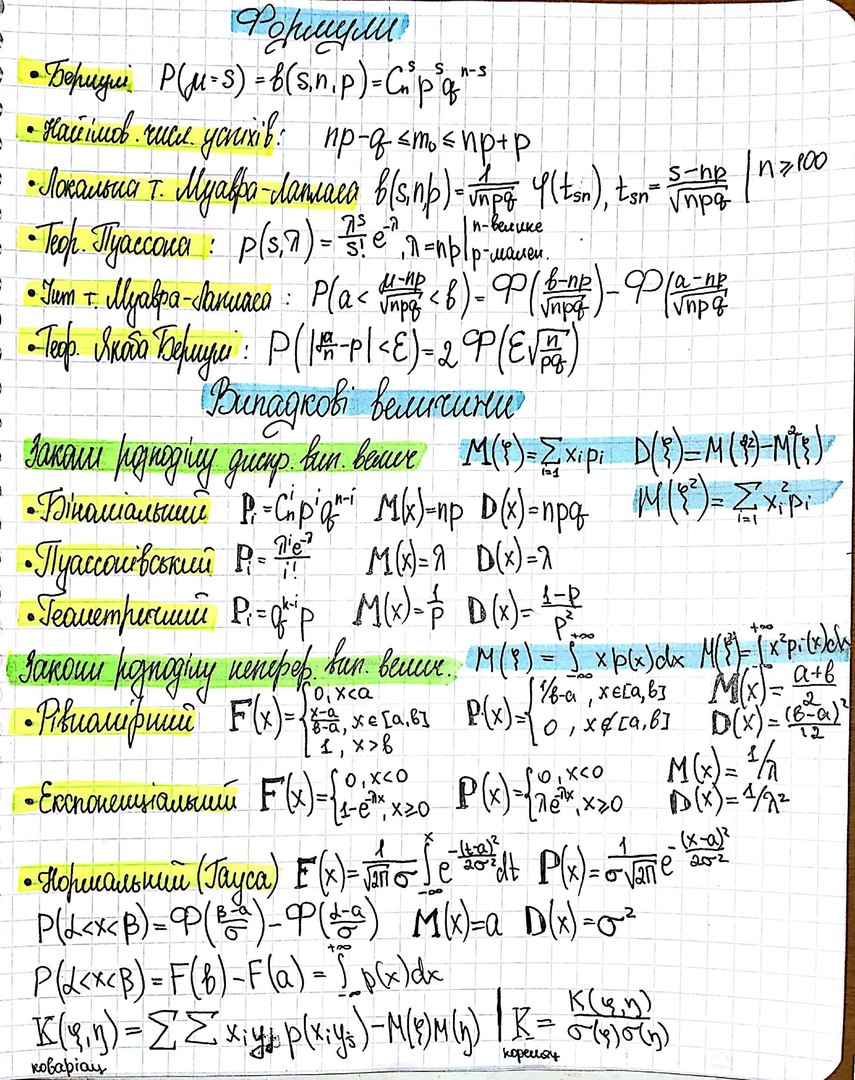 Формули
• Бернулі P(μ=s) = b(s,n,p) = Cₙˢ pˢ qⁿ⁻ˢ
• Найімов. числ. успіхів: np-q ≤ m₀ ≤ np+p
• Локальна т. Муавра-Лапласа b(s,n,p) = 1/√npq φ(tₛₙ), tₛₙ = s-np/√npq | n ≥ 100
• Теор. Пуассона: p(s,λ) = λˢ/s! e^-λ, λ = np | n-велике p-мален.
• Інт т. Муавра-Лапласа: P(a < μ-np/√npq < b) = Φ(b-np/√npq) - Φ(a-np/√npq
• Теор. Якоба Бернулі: P(|μ/n - p| < ε) = 2Φ(ε√n/pq)
Випадкові величини
Закони розподілу дискр. вип. велич M(ξ) = ∑ᵢ₌₁ xᵢpᵢ D(ξ) = M(ξ²) - M²(ξ)
• Біноміальний Pᵢ = Cₙⁱ pⁱ qⁿ⁻ⁱ M(x) = np D(x) = npq M(ξ²) = ∑ᵢ₌₁ xᵢ² pᵢ
• Пуассонівський Pᵢ = λⁱe^-λ/i! M(x) = λ D(x) = λ
• Геометричний Pᵢ = q^k-i p M(x) = 1/p D(x) = 1-p/p²
Закони розподілу непереp. вип. велич. M(ξ) = ∫₋∞^+∞ x p(x)dx M(ξ²) = ∫₋∞^+∞ x² pᵢ(x)dx
• Рівномірний F(x) = { 0, x<a; x-a/b-a, x∈[a,b]; 1, x>b P(x) = { 1/b-a, x∈[a,b]; 0, x∉[a,b] M(x) = a+b/2 D(x) = (b-a)²/12
• Експоненціальний F(x) = { 0, x<0; 1-e^-λx, x≥0 P(x) = { 0, x<0; λe^-λx, x≥0 M(x) = 1/λ D(x) = 1/λ²
• Нормальний (Гауса) F(x) = 1/√2π σ ∫₋∞^x e^-(t-a)²/2σ² dt P(x) = 1/σ√2π e^-(x-a)²/2σ²
P(α<x<β) = Φ(β-a/σ) - Φ(α-a/σ) M(x) = a D(x) = σ²
P(α<x<β) = F(b) - F(a) = ∫₋∞^+∞ p(x)dx
K(ξ,η) = ∑∑ xᵢyⱼ p(xᵢyⱼ) - M(ξ)M(η) | K = K(ξ,η)/σ(ξ)σ(η)
коваріац